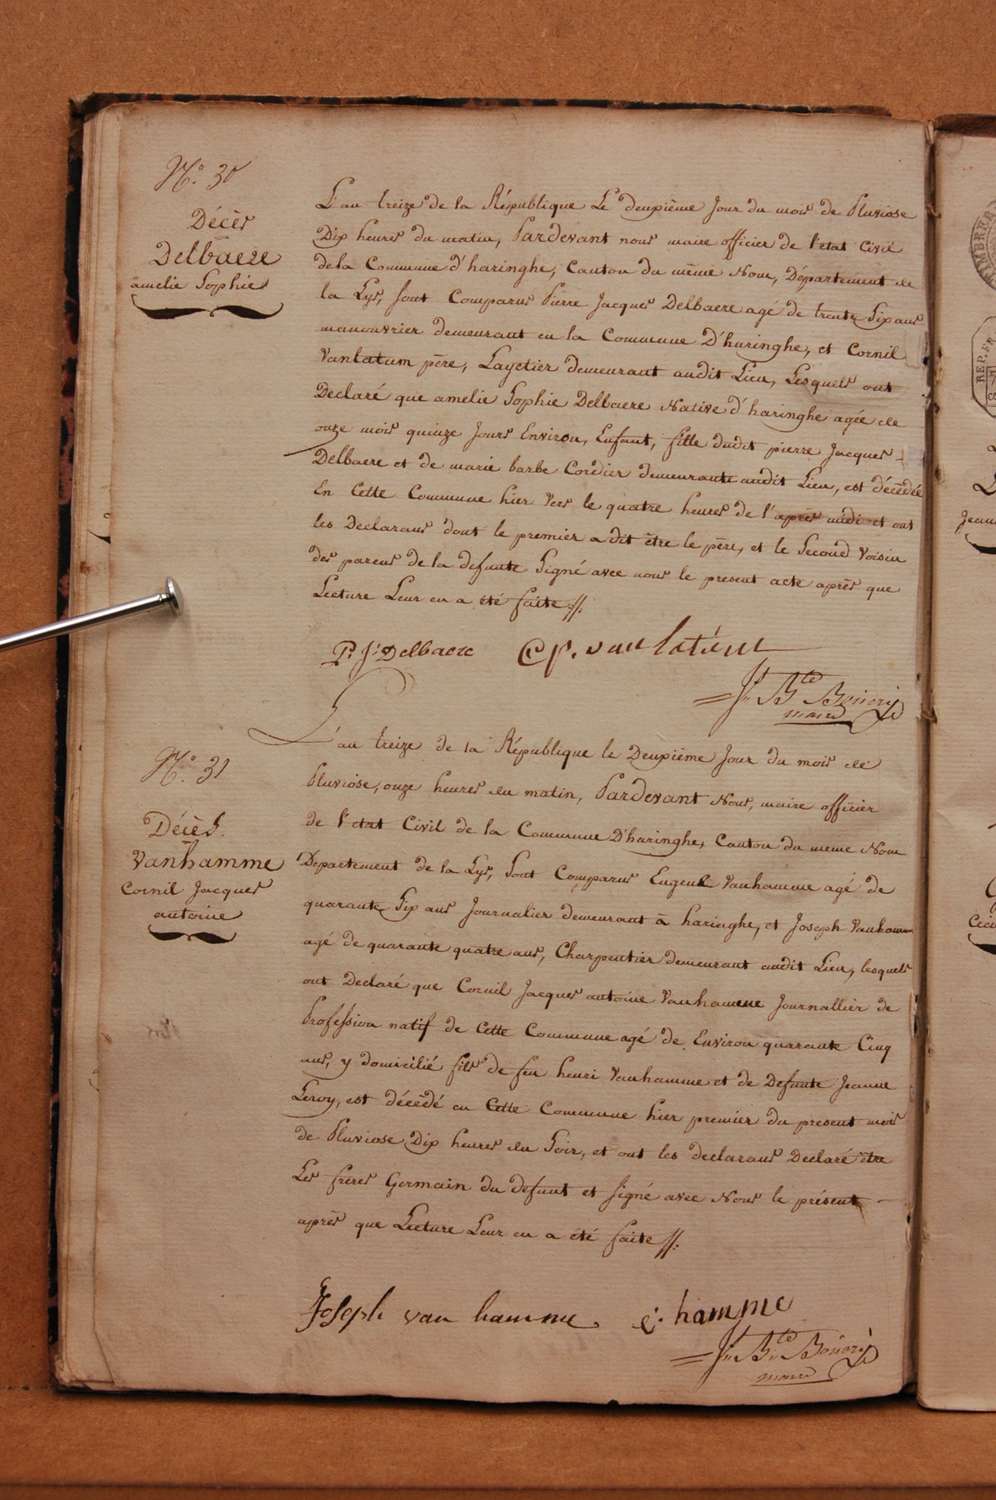 N.° 30
Décès
Delbaere
amelie Sophie
L'an treize de la République Le deuxième Jour du mois de Pluviose
Dix heures du matin, Pardevant nous maire officier de l'etat Civil
de la Commune d'haringhe, Canton du même Nom, Département de
la Lys, sont Comparus Pierre Jacques Delbaere agé de trente Six ans
manouvrier demeurant en la Commune D'haringhe, et Cornil
Vanlatum père, Layetier demeurant audit Lieu, Lesquels ont
Declaré que amelie Sophie Delbaere Native d'haringhe agée de
onze mois quinze Jours Environ, Enfant, fille dudit pierre Jacques
Delbaere et de marie barbe Cordier demeurante audit Lieu, est décédée
En Cette Commune hier Vers le quatre heures de l'après midi et ont
les Declarans dont le premier a dit être le père, et le Second Voisin
des parens de la defunte Signé avec nous le present acte après que
Lecture Leur en a été faite //.
P. J. Delbaere
maire
N.° 31
Décès.
Vanhamme
Cornil Jacques
antoine
L'an treize de la République le Deuxième Jour du mois de
Pluviose, onze heures du matin, Pardevant Nous, maire officier
de l'etat Civil de la Commune D'haringhe, Canton du meme Nom
Departement de la Lys, Sont Comparus Eugene Vanhamme agé de
quarante Six ans Journalier demeurant à haringhe, et Joseph Vanhamme
agé de quarante quatre ans, Charpentier demeurant audit Lieu, lesquels
ont Declaré que Cornil Jacques antoine Vanhamme Journallier de
Profession natif de Cette Commune agé de Environ quarante Cinq
ans, y domicilié fils de feu henri Vanhamme et de Defunte Jeanne
Leroy, est décédé en Cette Commune hier premier du present mois
de Pluviose Dix heures du Soir, et ont les declarans Declaré être
Les frères Germain du defunt et signé avec Nous le présent
après que Lecture Leur en a été faite //.
Joseph van hamme
e. hamme
maire